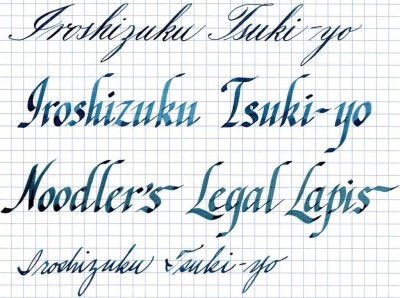 Iroshizuku Tsuki-yo
Iroshizuku Tsuki-yo
Noodler's Legal Lapis
Iroshizuku Tsuki-yo